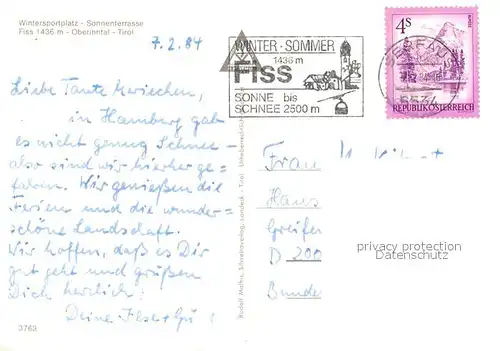 Wintersportplatz - Sonnenterrasse
Fiss 1436 m - Oberinntal - Tirol
7.2.84
WINTER - SOMMER
1436 m
Fiss
SONNE bis
SCHNEE 2500 m
4S
REPUBLIK ÖSTERREICH
Liebe Tante
in Hamburg gab
es nicht genug Schnee -
also sind wir hierher ge=
fahren. Wir genießen die
Ferien und die wunder=
schöne Landschaft.
Wir hoffen, daß es Dir
gut geht und grüßen
Dich herzlich!
Deine Ilse +
Frau
Hans
Greifer
D 200
Bunde
privacy protection
Datenschutz
3763